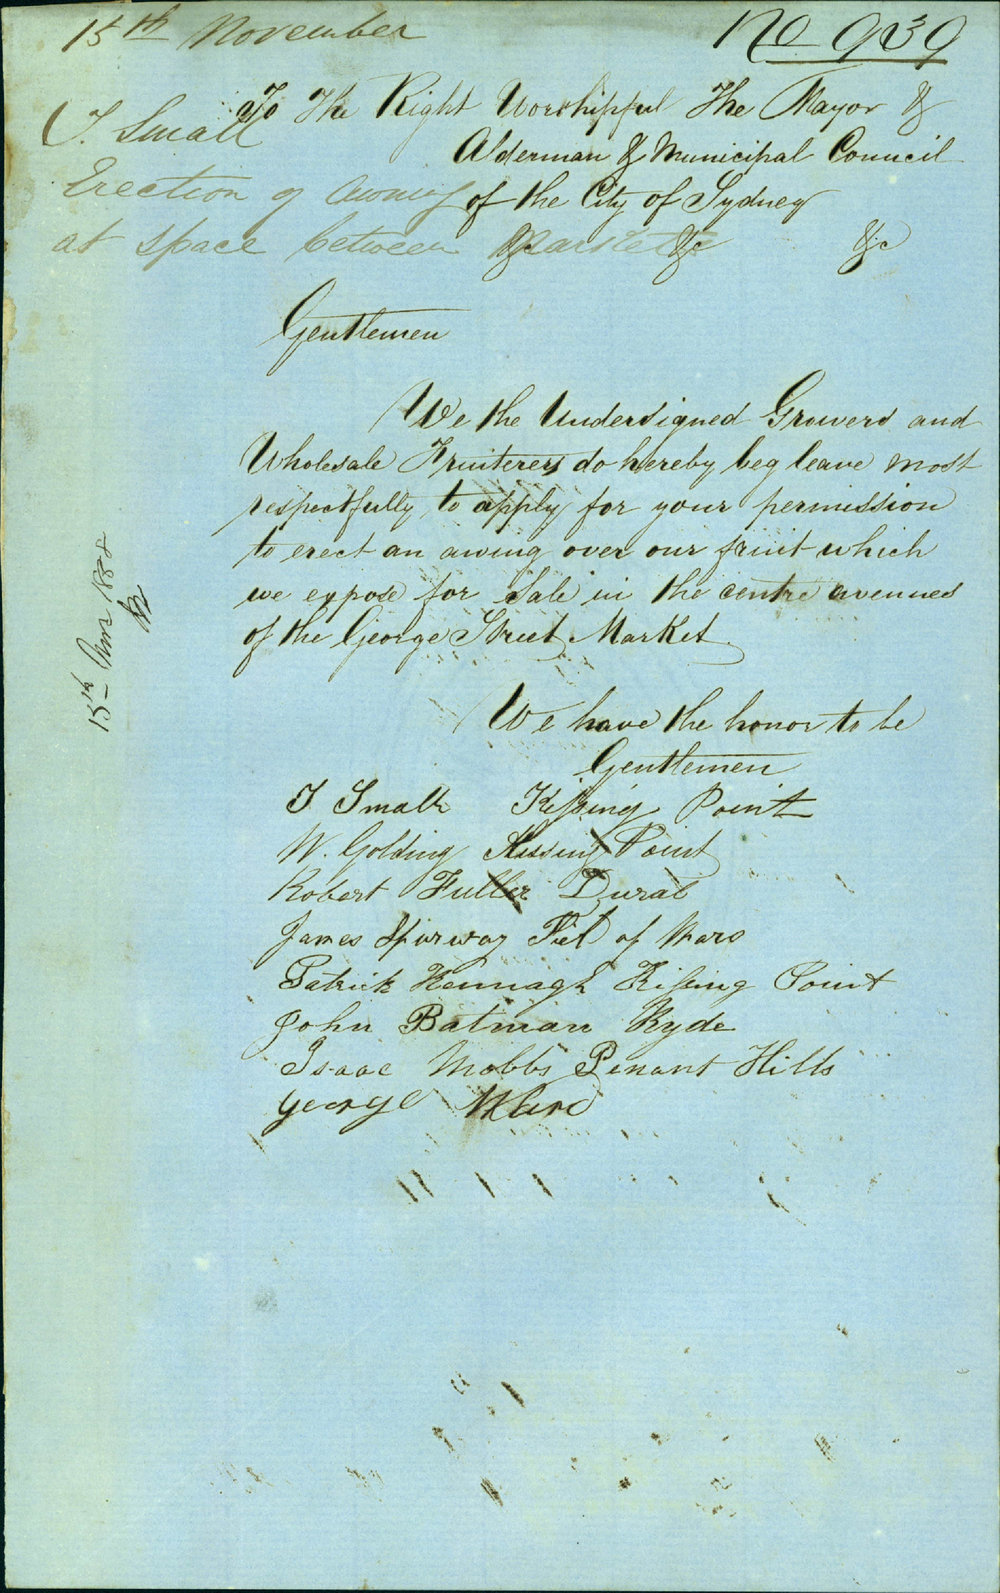 15th November
No 939
To The Right Worshipful The Mayor &
J. Small
Alderman & Municipal Council
Erection of Awning
of the City of Sydney
at space between Markets
&c &c &c
Gentlemen
We the Undersigned Growers and
Wholesale Fruiterers do hereby beg leave most
respectfully to apply for your permission
to erect an awing over our fruit which
we expose for Sale in the centre avenues
of the George Street Market
15th Nov
We have the honor to be
Gentlemen
J Small Kissing Point
W. Golding Kissing Point
Robert Fuller Dural
James Spurway Fiel of Mars
Patrick Kennagh Kissing Point
John Batman Ryde
Isaac Mobbs Penant Hills
George